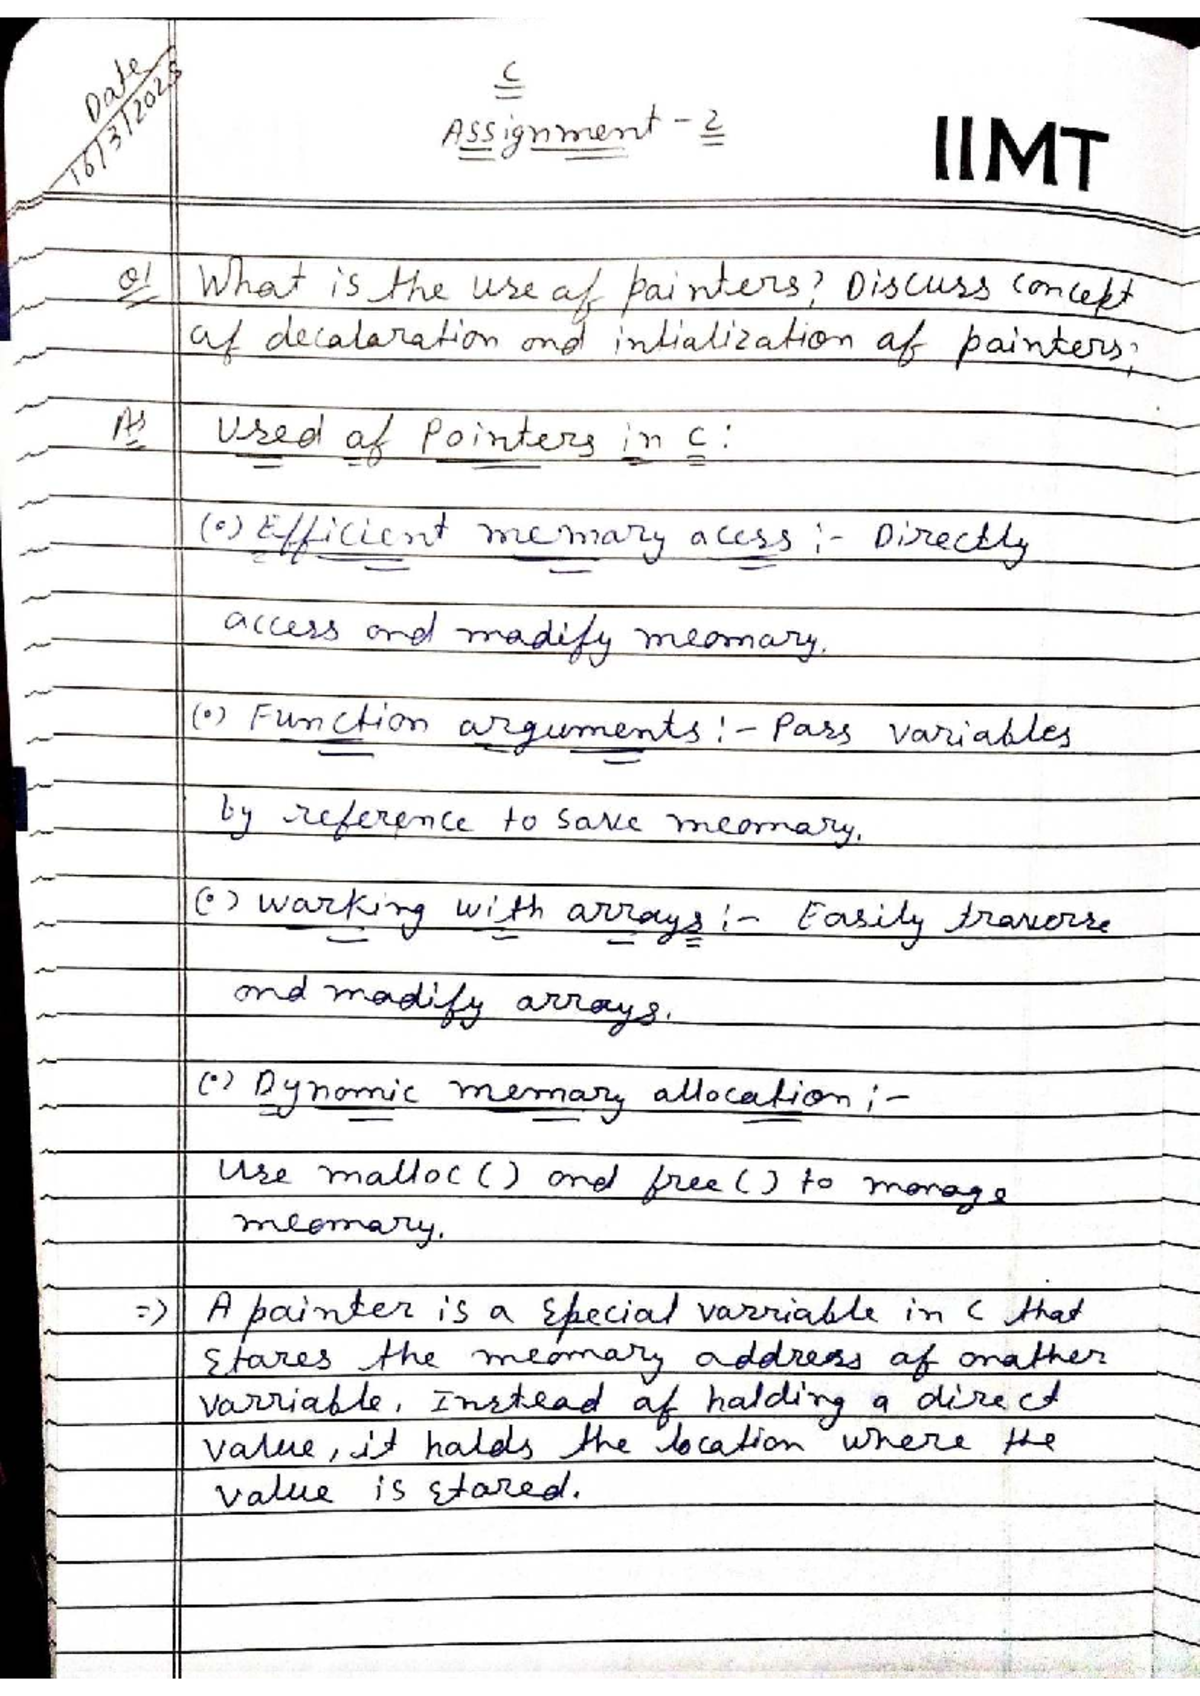 Date
16/3/2025
C
Assignment - 2
IIMT
Q1 What is the use af painters? Discuss concept
af decalaration and intialization af painters;
As Used af Pointers in C :
(•) Efficient memary acess :- Directly
access and madify meomary.
(•) Function arguments :- Pass variables
by reference to save meomary.
(•) Warking with arrays :- Easily traverse
and madify arrays.
(•) Dynamic memary allocation :-
Use malloc() and free() to manage
meomary.
=> A painter is a special varriable in C that
stares the meomary address af anather
varriable. Instead af halding a direct
value, it halds the location where the
value is stared.